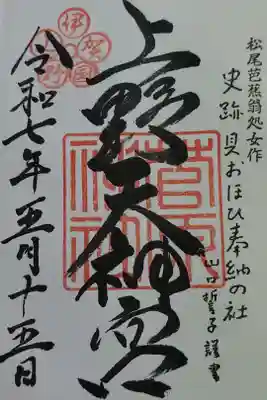 松尾芭蕉翁処女作
史跡 貝おほひ奉納の社
山口誓子謹書
上野天神宮
菅原神社
伊賀国
令和七年五月十五日